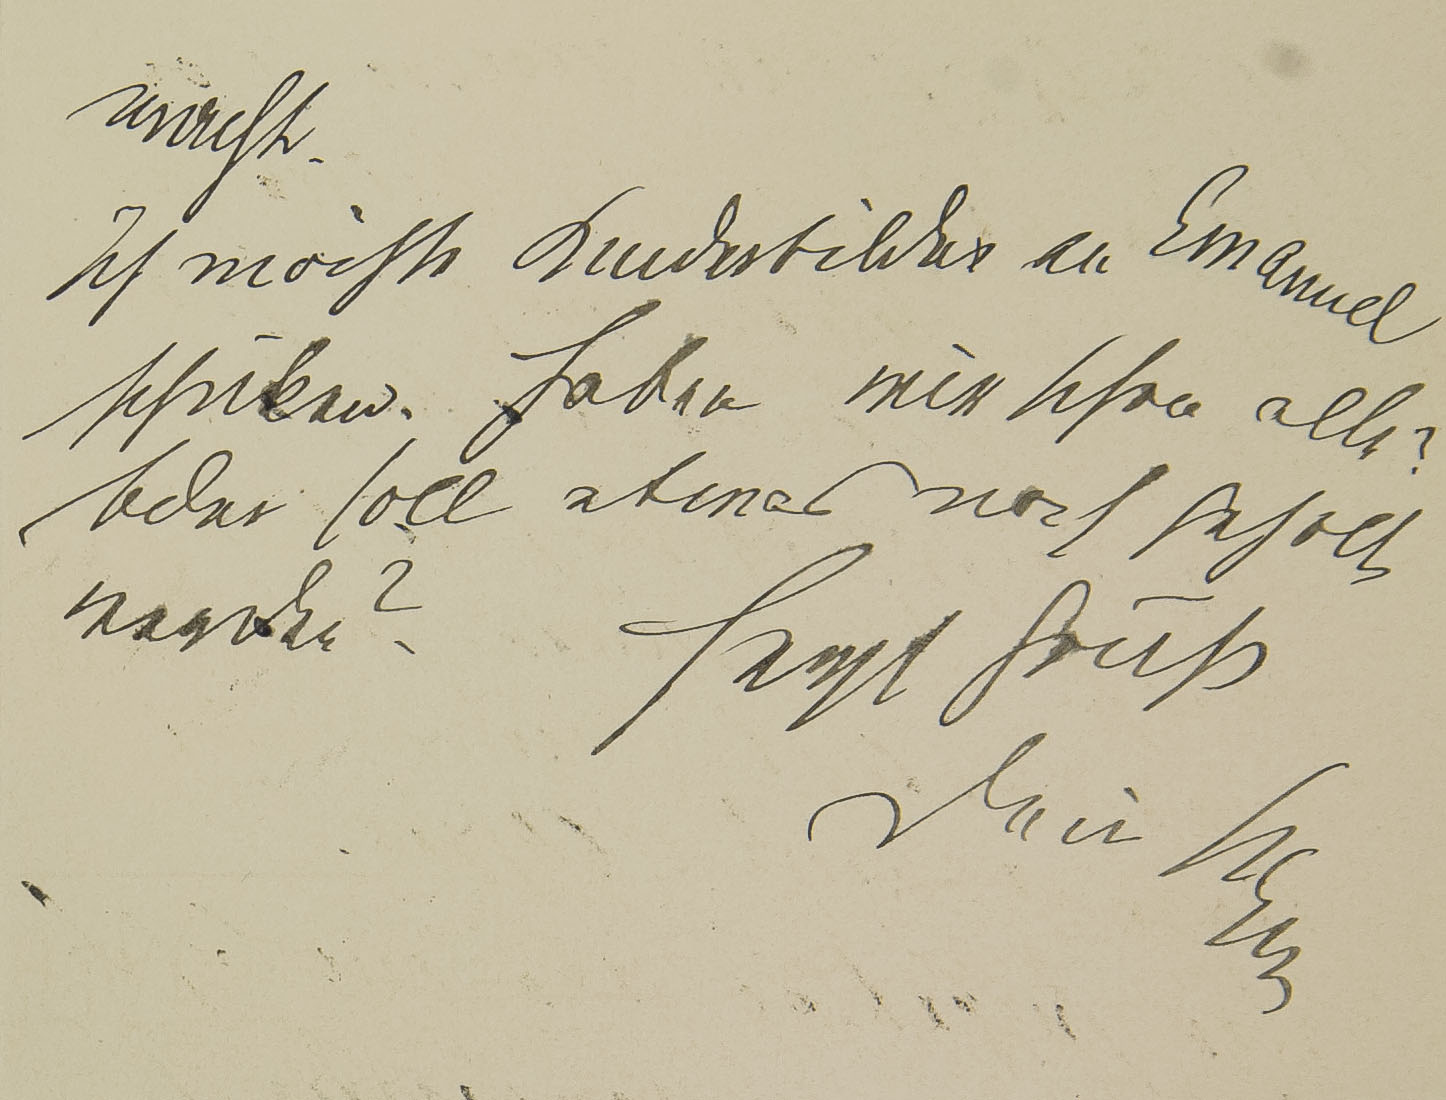 macht.
Ich möchte Kinderbilder an Emanuel
schicken. Haben wir schon alle?
Oder soll etwas noch geholt
werden?
Herzl Gruß
Dein